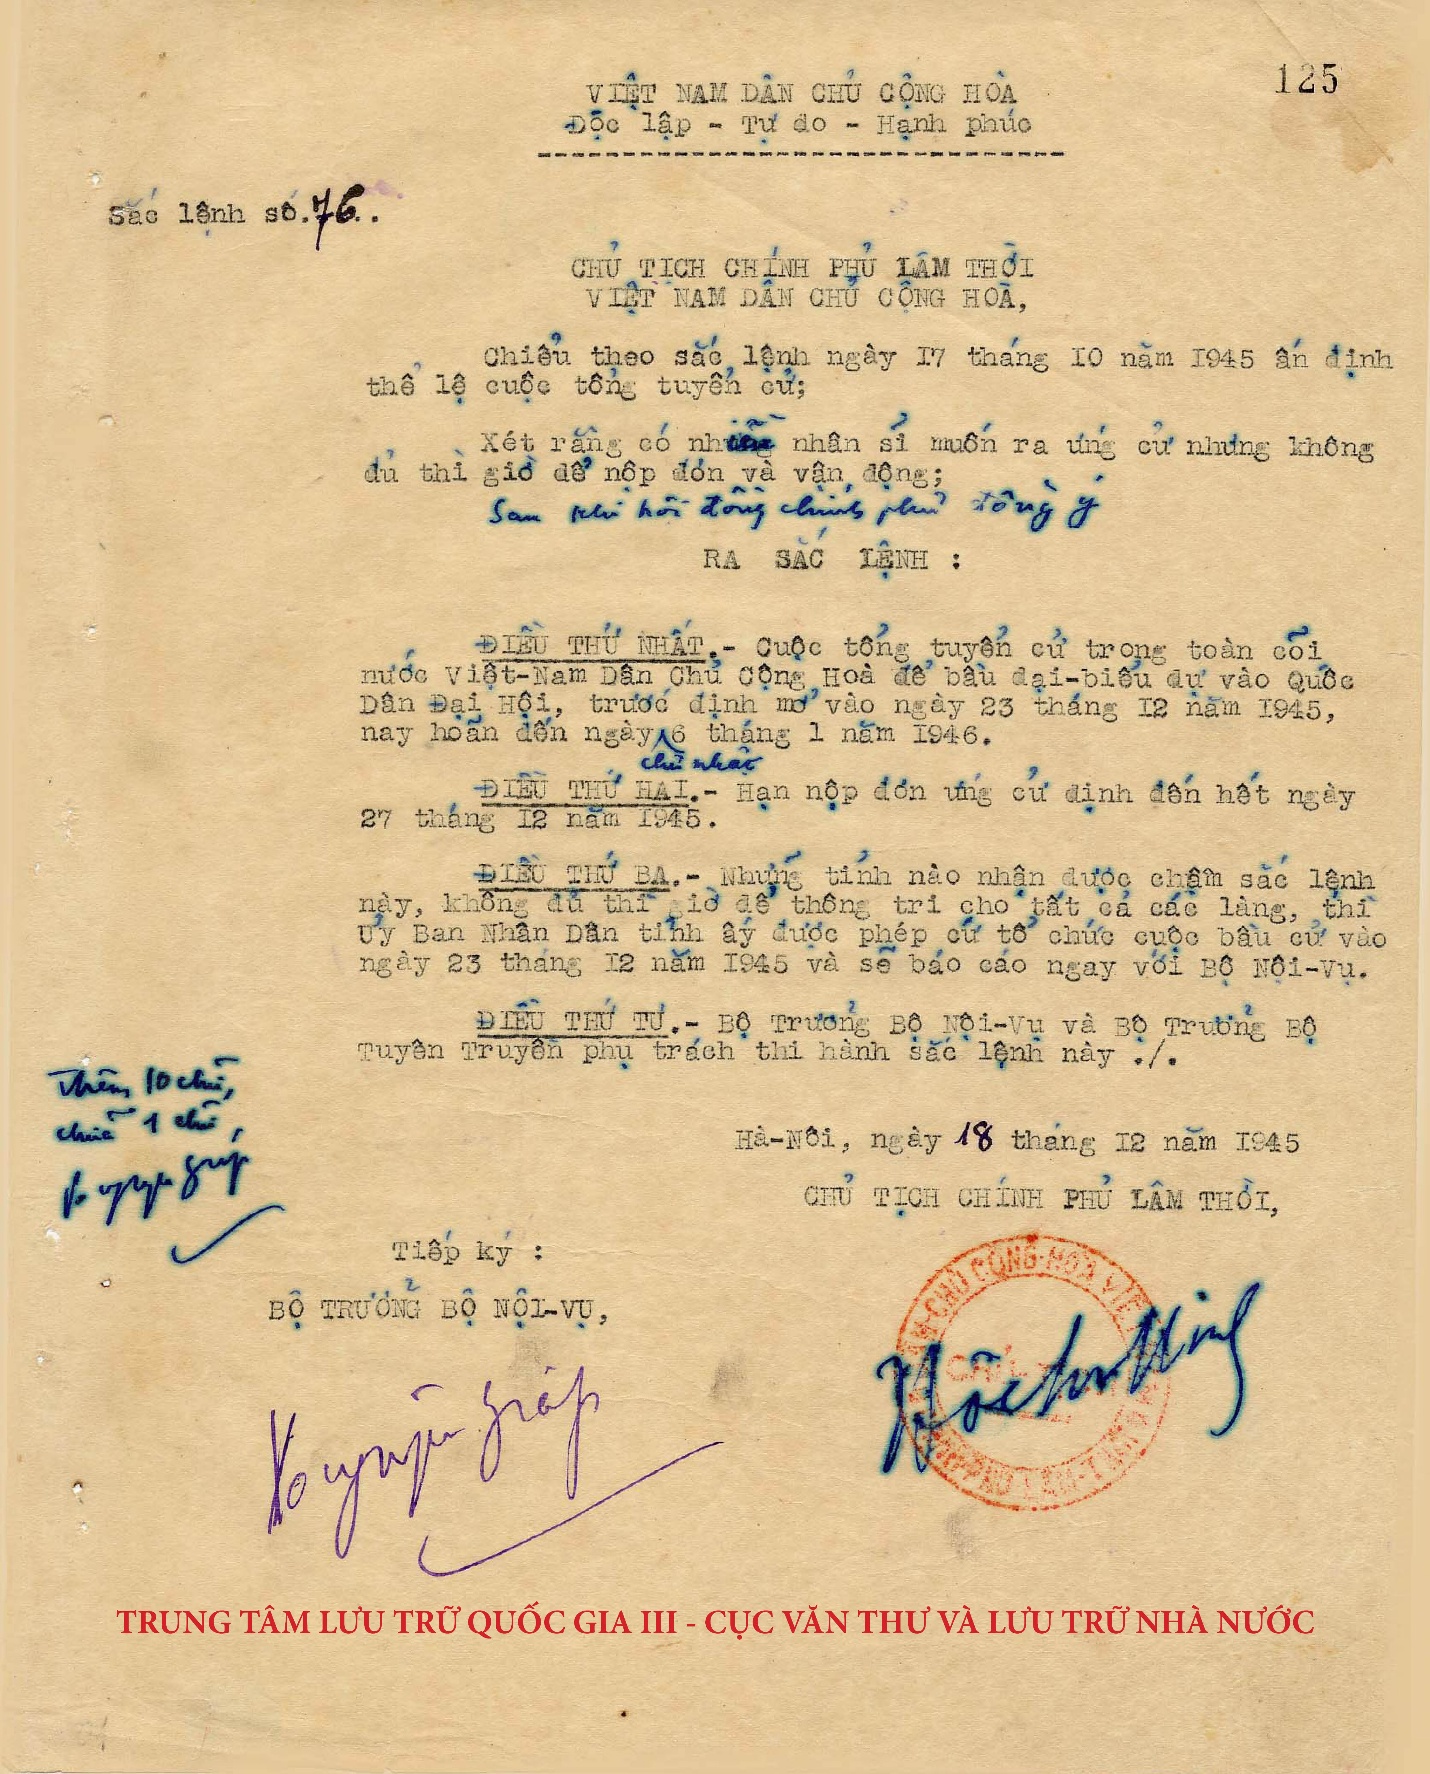 125
VIỆT NAM DÂN CHỦ CỘNG HÒA
Độc lập - Tự do - Hạnh phúc
Sắc lệnh số.76..
CHỦ TỊCH CHÍNH PHỦ LÂM THỜI
VIỆT NAM DÂN CHỦ CỘNG HOÀ,
Chiểu theo sắc lệnh ngày I7 tháng IO năm I945 ấn định
thể lệ cuộc tổng tuyển cử;
Xét rằng có những nhân sĩ muốn ra ứng cử nhưng không
đủ thì giờ để nộp đơn và vận động;
Sau khi hội đồng chính phủ đồng ý
RA SẮC LỆNH :
ĐIỀU THỨ NHẤT.- Cuộc tổng tuyển cử trong toàn cõi
nước Việt-Nam Dân Chủ Cộng Hoà để bầu đại-biểu dự vào Quốc
Dân Đại Hội, trước định mở vào ngày 23 tháng I2 năm I945,
nay hoãn đến ngày 6 tháng 1 năm I946.
chủ nhật
ĐIỀU THỨ HAI.- Hạn nộp đơn ứng cử định đến hết ngày
27 tháng I2 năm I945.
ĐIỀU THỨ BA.- Những tỉnh nào nhận được chậm sắc lệnh
này, không đủ thì giờ để thông tri cho tất cả các làng, thì
Uỷ Ban Nhân Dân tỉnh ấy được phép cứ tổ chức cuộc bầu cử vào
ngày 23 tháng I2 năm I945 và sẽ báo cáo ngay với Bộ Nội-Vụ.
ĐIỀU THỨ TƯ.- Bộ Trưởng Bộ Nội-Vụ và Bộ Trưởng Bộ
Tuyên Truyền phụ trách thi hành sắc lệnh này ./.
Thêm 10 chữ,
chữa 1 chữ,
Võ nguyên Giáp
Hà-Nội, ngày 18 tháng I2 năm I945
CHỦ TỊCH CHÍNH PHỦ LÂM THỜI,
Tiếp ký :
BỘ TRƯỞNG BỘ NỘI-VỤ,
Hồ Chí Minh
Võ nguyên Giáp
TRUNG TÂM LƯU TRỮ QUỐC GIA III - CỤC VĂN THƯ VÀ LƯU TRỮ NHÀ NƯỚC